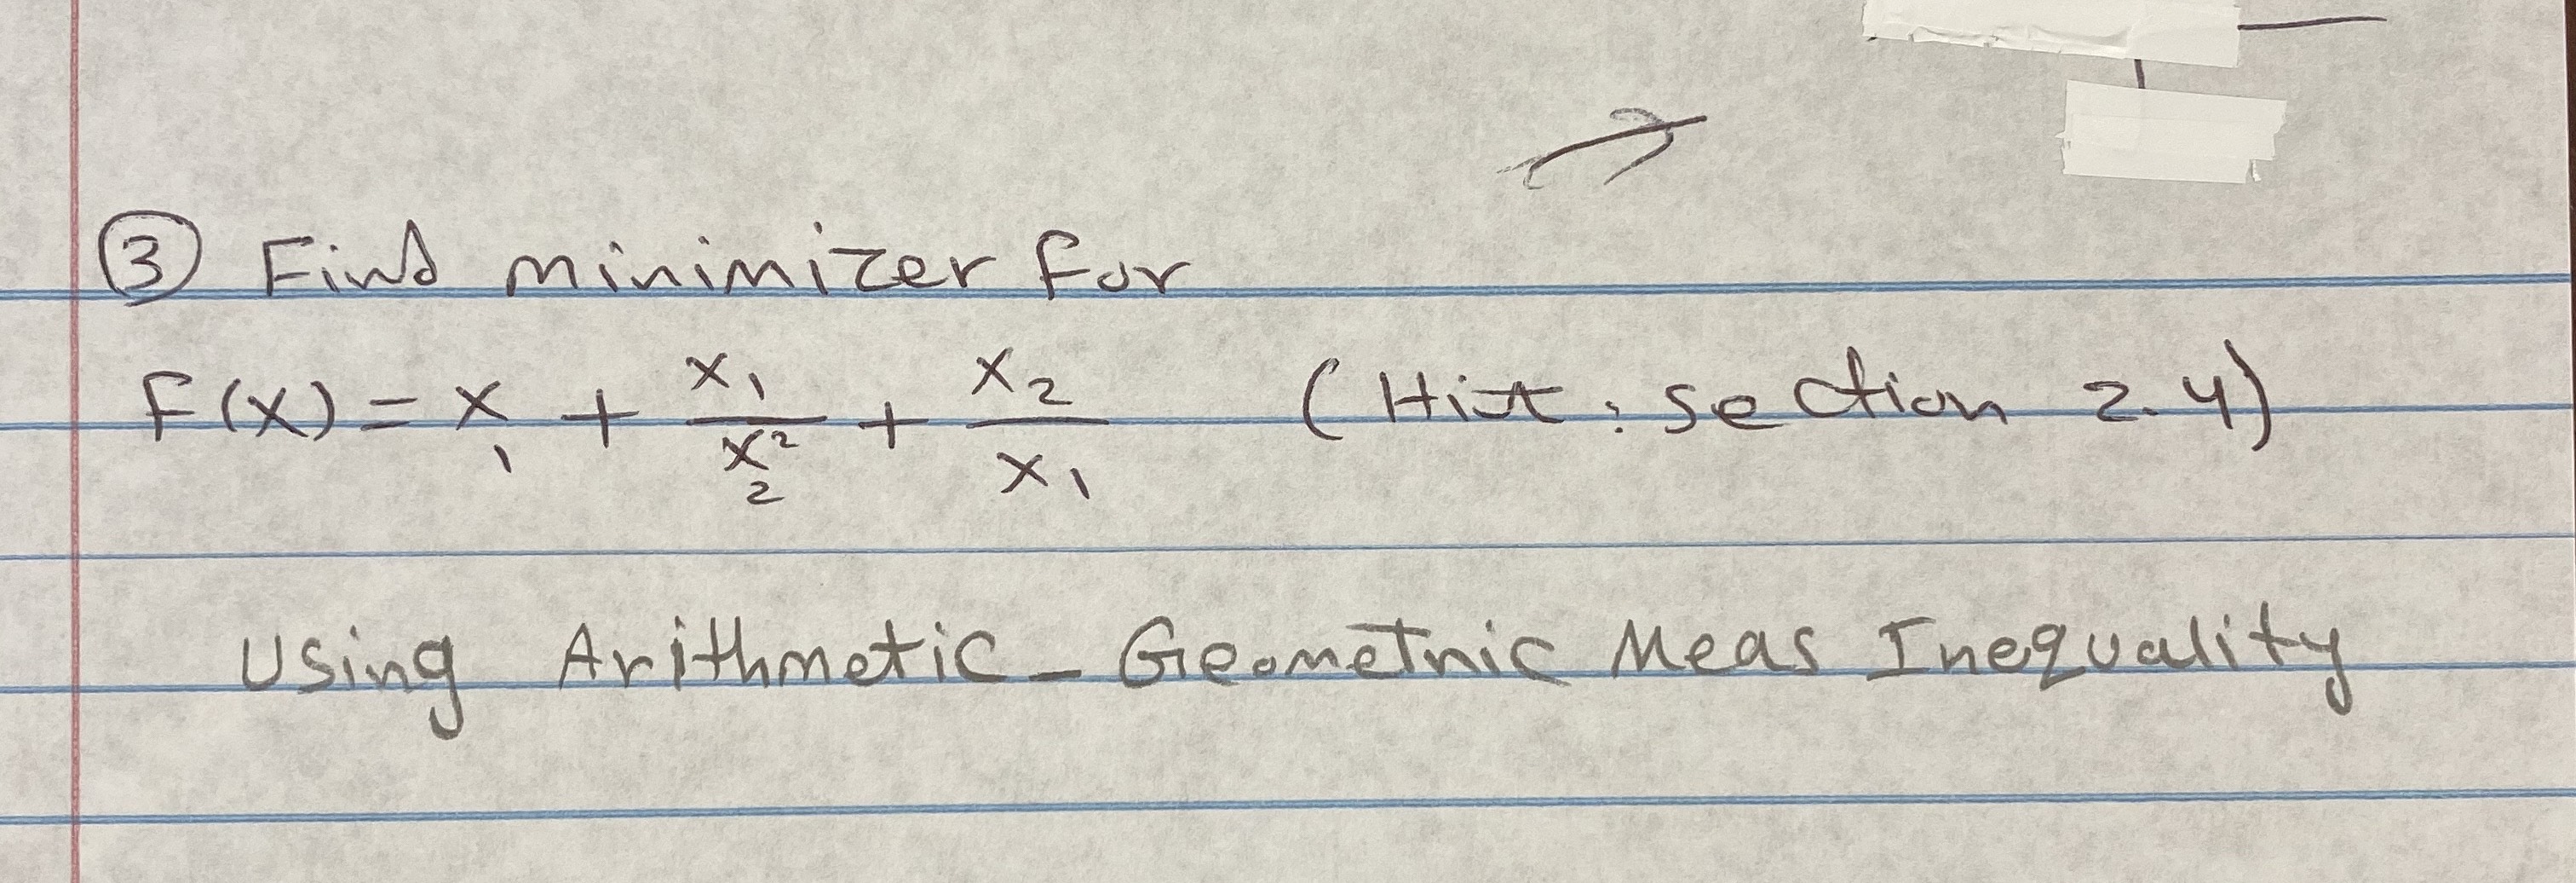 ③ Find minimizer for
f(x) = x₁ + x₁/x₂² + x₂/x₁ (Hint: section 2.4)
Using Arithmetic - Geometric Meas Inequality